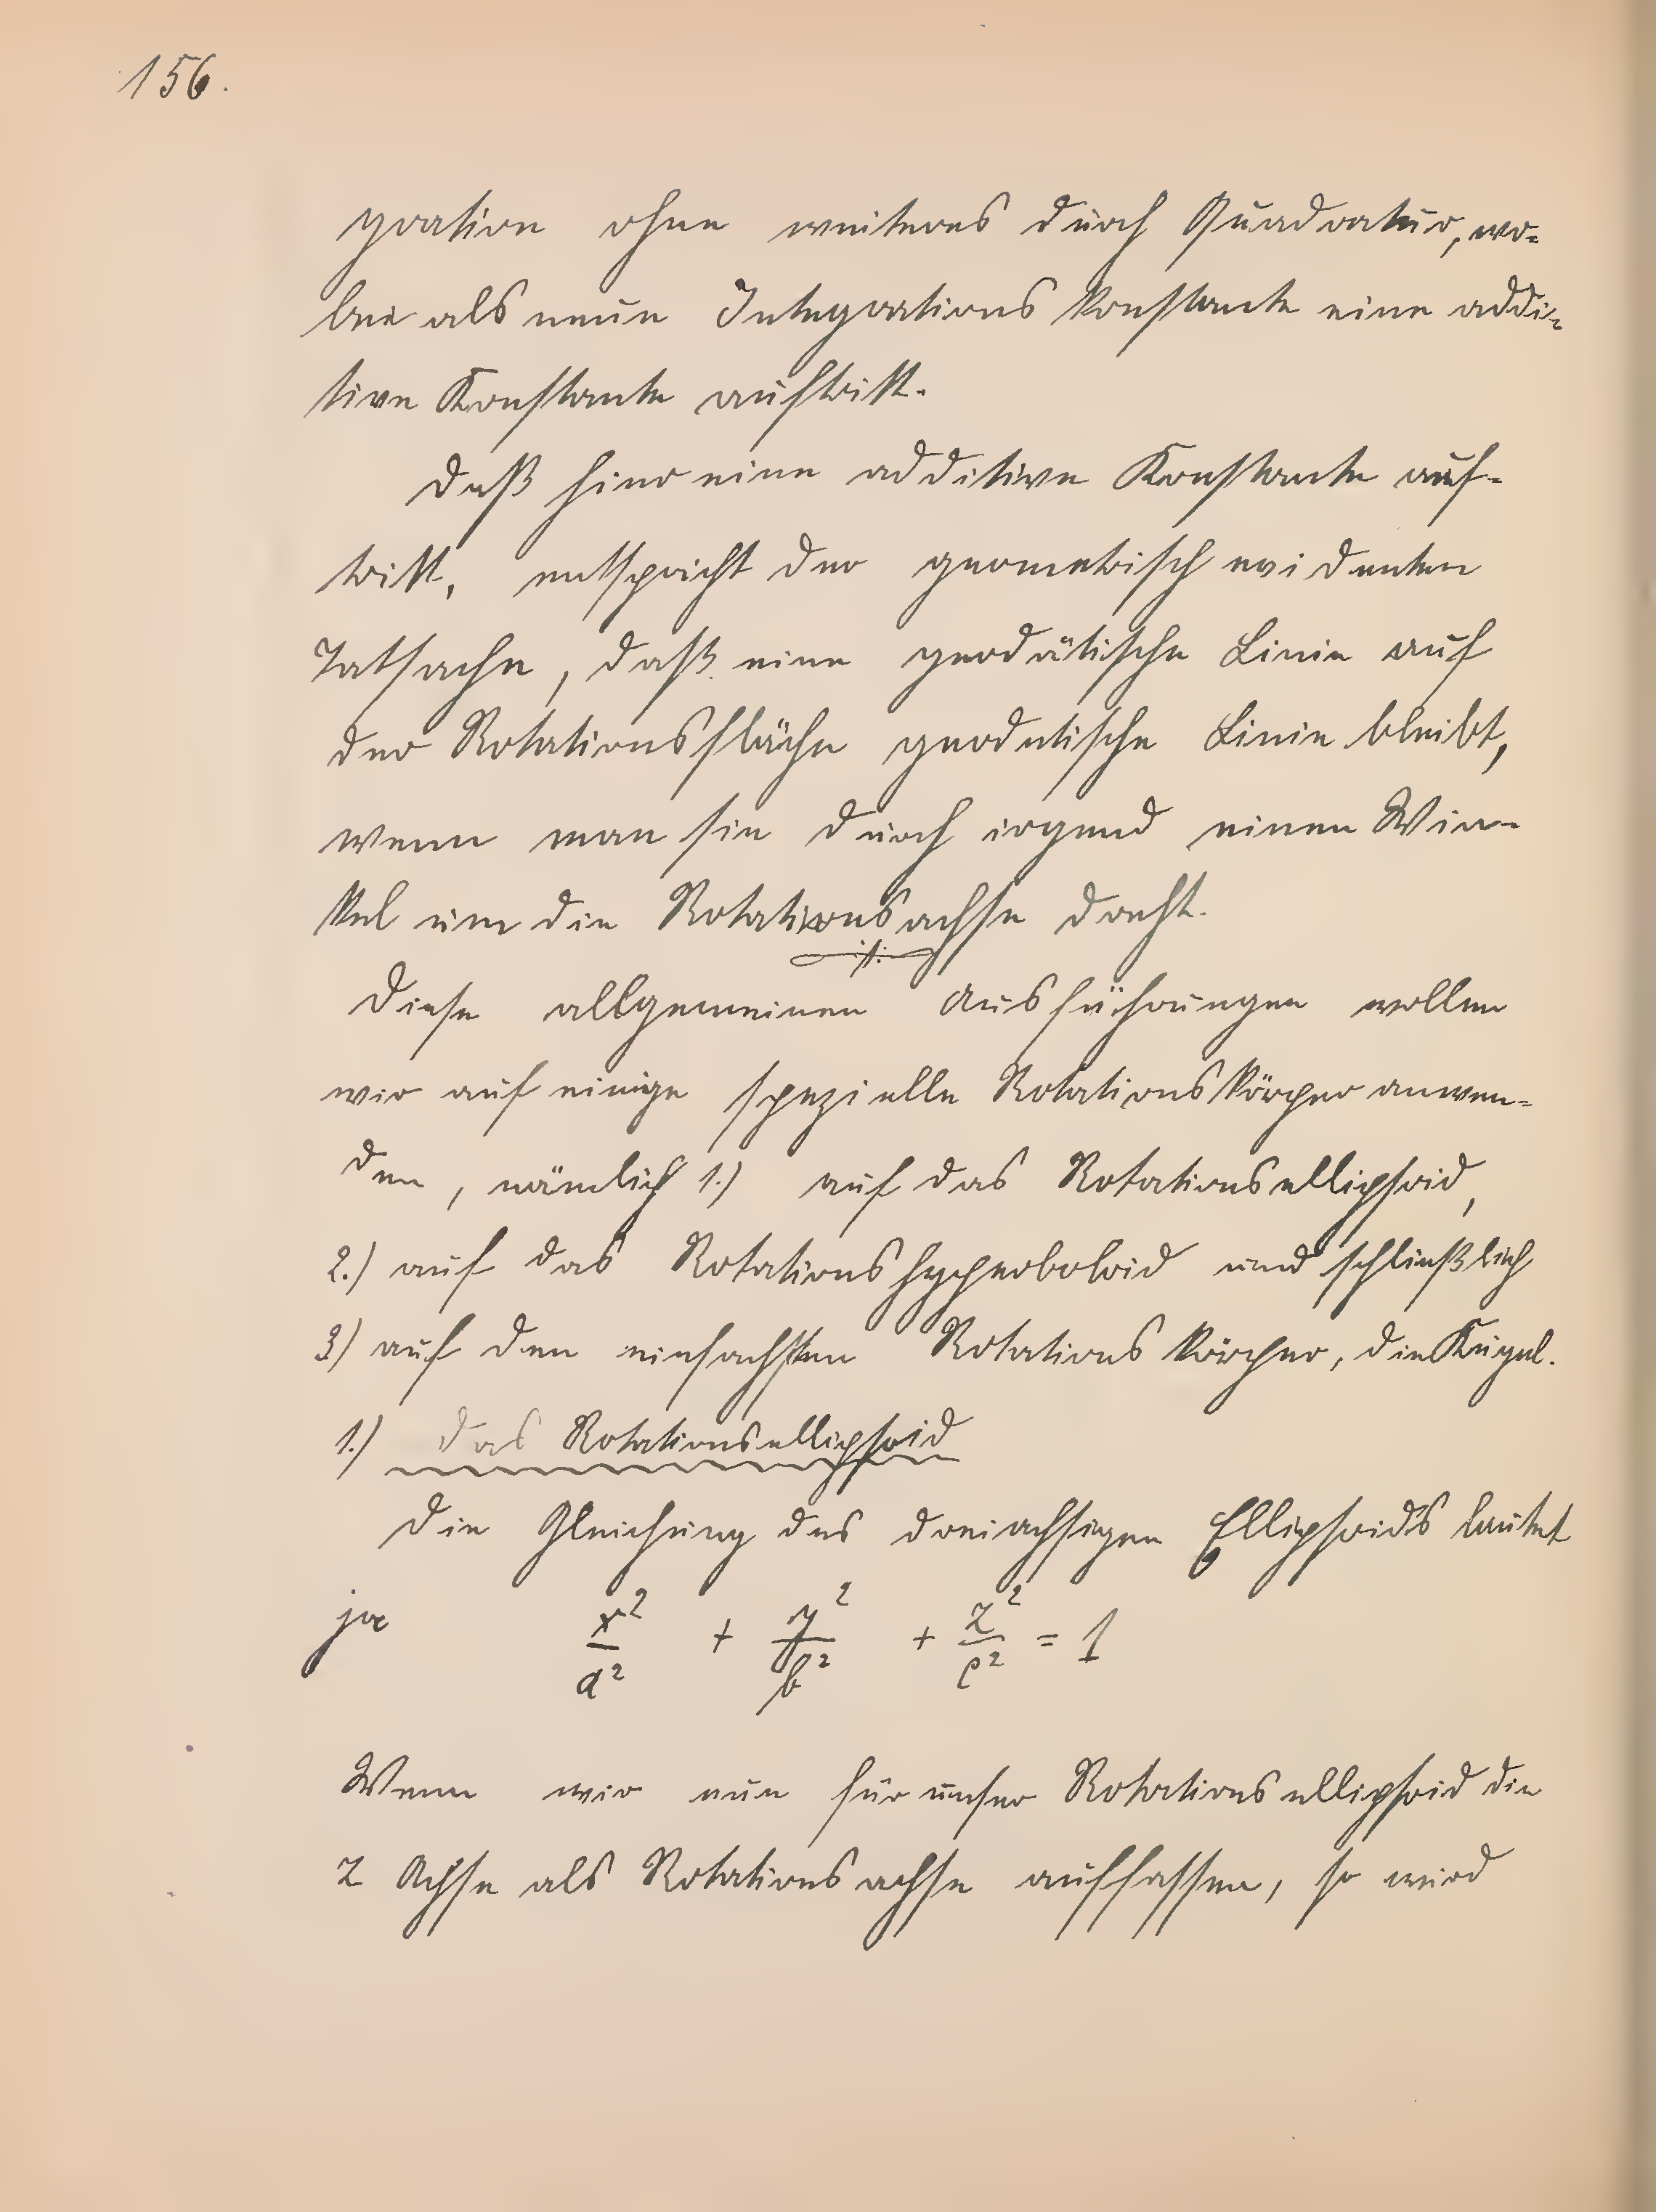 156.
gration ohne weiteres durch Quadratur, wo-
bei als neue Integrationskonstante eine addi-
tive Konstante auftritt.
Daß hier eine additive Konstante auf-
tritt, entspricht der geometrisch evidenten
Tatsache, daß eine geodätische Linie auf
der Rotationsfläche geodetische Linie bleibt,
wenn man sie durch irgend einen Win-
kel um die Rotationsachse dreht.
Diese allgemeinen Ausführungen wollen
wir auf einige spezielle Rotationskörper anwen-
den, nämlich 1.) auf das Rotationsellipsoid,
2.) auf das Rotationshyperboloid und schließlich
3) auf den einfachsten Rotationskörper, die Kugel.
1.) Das Rotationsellipsoid
Die Gleichung des dreiachsigen Ellipsoids lautet
ja x²/a² + y²/b² + z²/c² = 1
Wenn wir nun für unser Rotationsellipsoid die
Z Achse als Rotationsachse auffassen, so wird